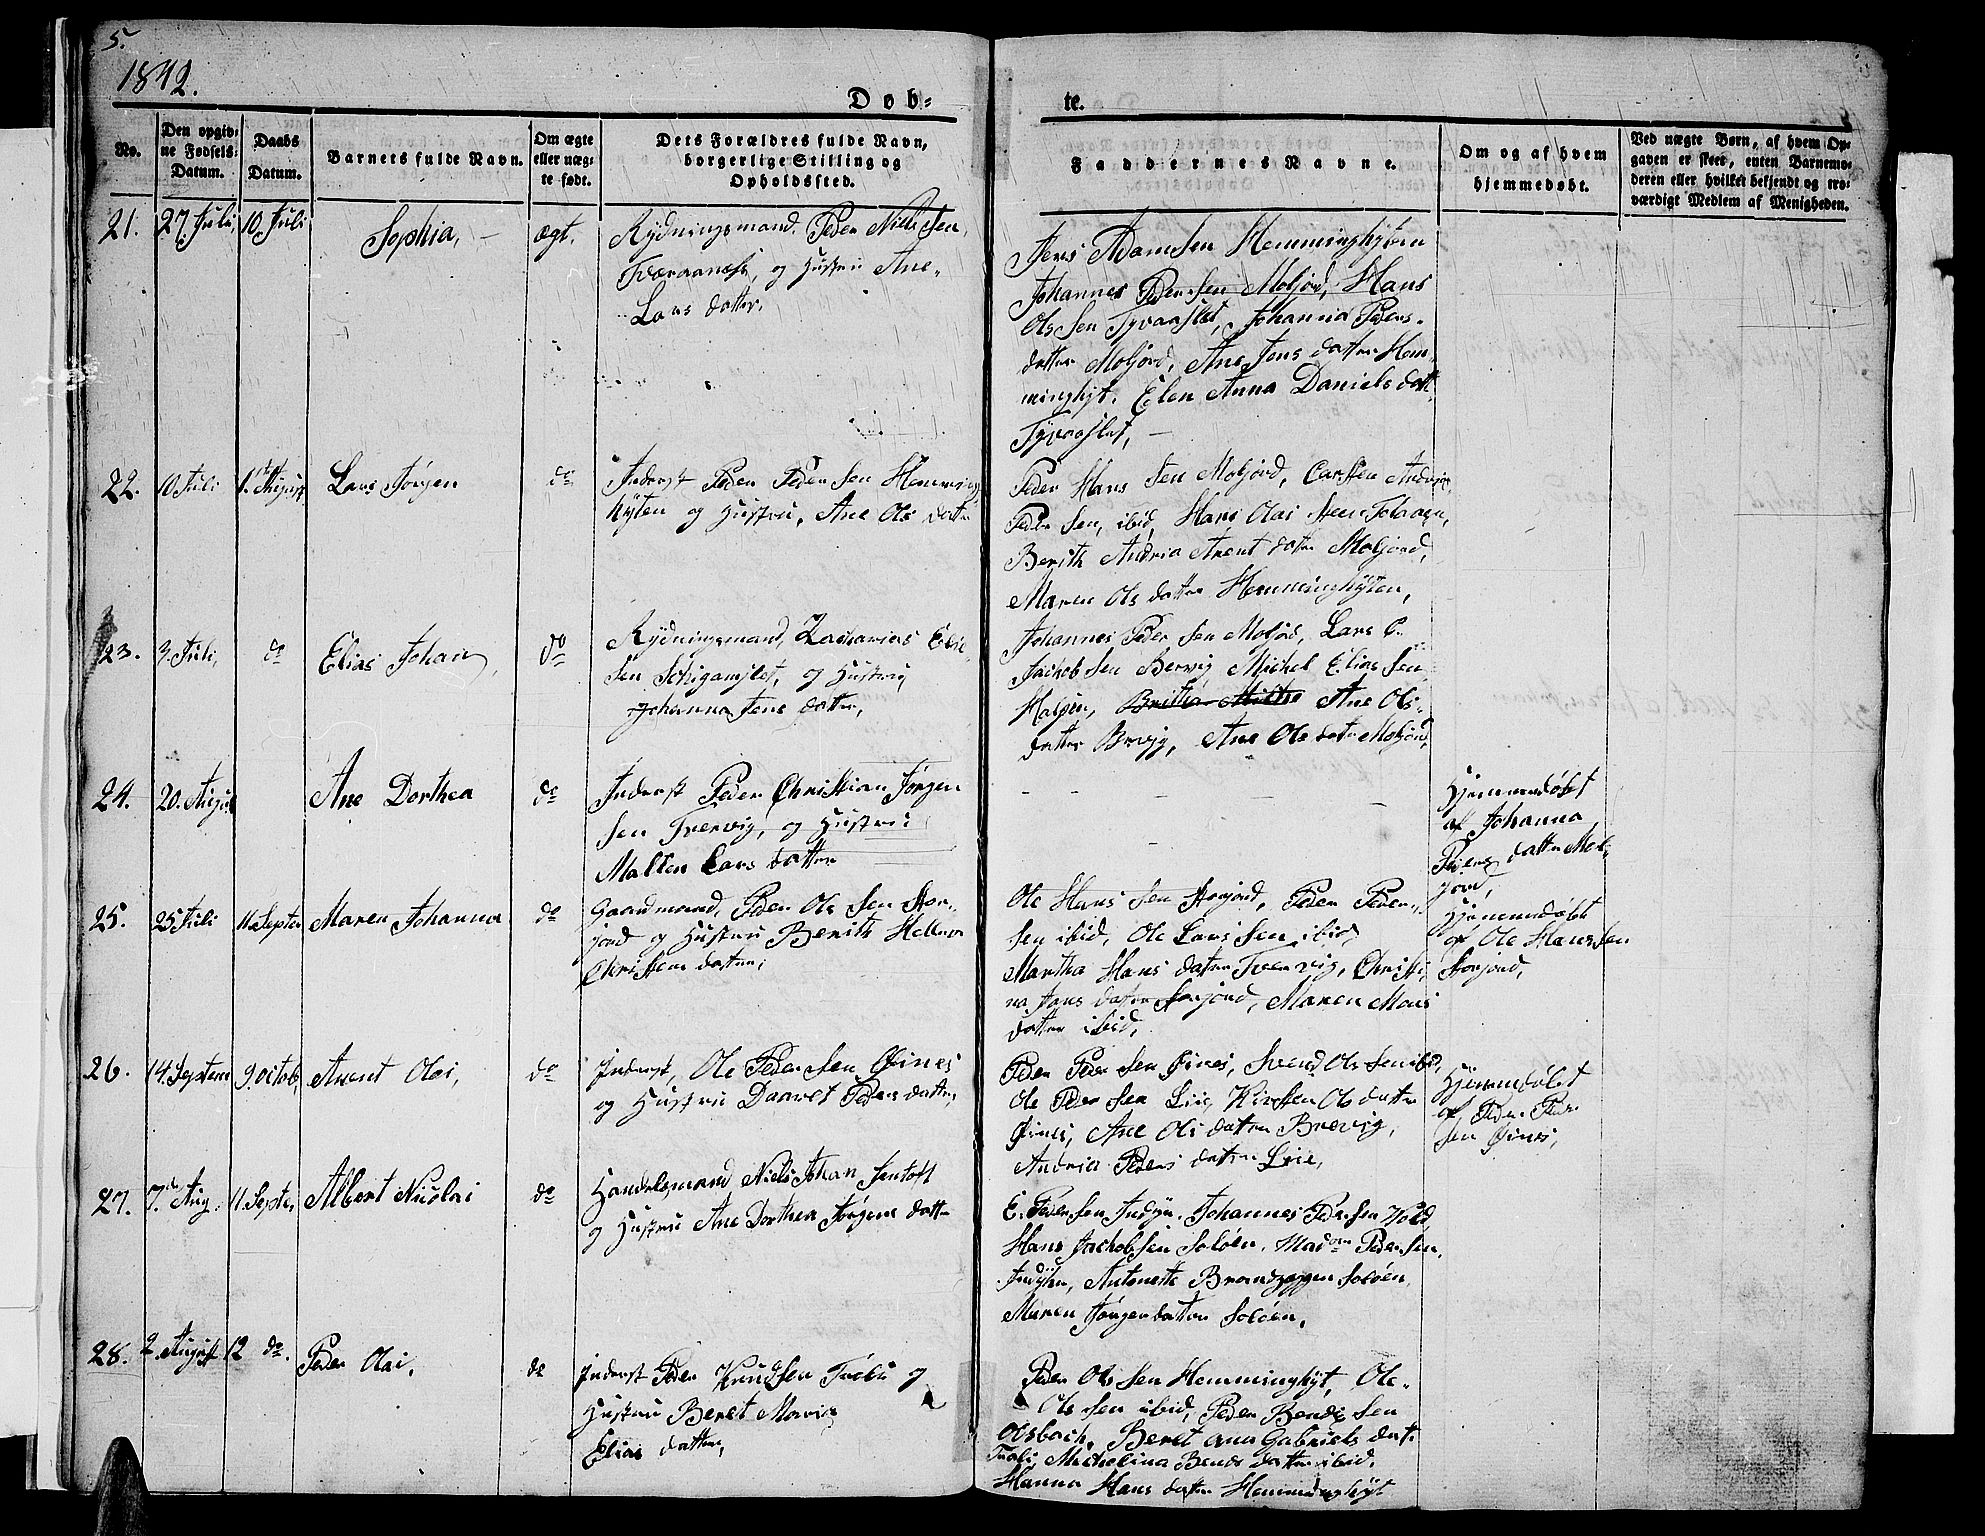 5.
1842.
Døb-
te.
No.
Den opgiv-
ne Fødsels-
Datum.
Daabs
Datum.
Barnets fulde Navn.
Om ægte
eller næg-
te født.
Dets Forældres fulde Navn,
borgerlige Stilling og
Opholdssted.
Faddernes Navne.
Om og af hvem
hjemmedøbt.
Ved uægte Børn, af hvem Op-
gaven er skeet, enten Barnemo-
deren eller hvilket bekjendt og tro-
værdigt Medlem af Menigheden.
21. 27. Juli, 10. Juli Sophia, ægt.
Rydningsmand Peder Niels Sen
Tværaanæs, og Hustru Ane
Lars datter,
Jens Adamsen Hemminghyten
Johannes Peder Sen Moljord, Hans
Ols Sen Tyvaaslet, Johanna Peders-
datter Moljord, Ane Jens datter Hem-
minghyt, Elen Anna Daniels datt.
Tyvaaslet,
22. 10 Juli 1ste August Lars Jørgen do
Inderst Peder Peder Sen Hemming
hyten og Hustru, Ane Ols datter
Peder Hans Sen Moljord, Carsten Andreas
Peder Sen, ibid, Hans Olai
Berith Andria Arent datter Moljord,
Maren Ols datter Hemminghyten,
23. 3. Juli, do Elias Johan, do
Rydningsmand, Zacharias Elie
Sen, og Hustru,
Johanna Jens datter,
Johannes Peder Sen Moljord, Lars C.
Jachob Sen Bervig, Michel Elias Sen
Halsen, Britha Ane Ols-
datter Brevig, Ane Ols datter Moljord,
24. 20. August Ane Dorthea do
Inderst Peder Christian Jørgen
Sen Tvervig, og Hustru
Malten Lars datter
Hjemmedøbt
af Johanna
Peders datter Mol-
jord,
25. 25 Juli 11. Septer Maren Johanna do
Gaardmand, Peder Ols Sen Stor-
jord og Hustru Berith Hellena
Christens datter,
Ole Hans Sen Storjord, Peder Peder-
sen ibid, Ole Lars Sen ibid,
Martha Hans datter Tvervig, Christi
na Jens datter Storjord, Maren Mons
datter ibid,
Hjemmedøbt
af Ole Hans Sen
Storjord,
26. 14. Septem 9. octob Arent Olai, do
Inderst, Ole Peder Sen Øines
og Hustru Daaret Peders datter,
Peder Peder Sen Øines, Svend Ols Sen ibid,
Ole Peder Sen Lie, Kirsten Ols datter
Øines, Ane Ols datter Brevig,
Andria Peders datter Leie,
Hjemmedøbt
af Peder Peder
Sen Øines,
27. 7. Aug. 11. Septer Albert Nicolai do
Handelsmand Niels Johan Sentoft
og Hustru Ane Dorthea Jørgens datter
E. Peder Sen Indyr, Johannes Peder Sen Wold,
Hans Jachob Sen Soløen, Madm Peder Sen,
Indyren, Antonette Brandzeggen Soløen,
Maren Jørgen datter Soløen,
28. 2. August 12 do. Peder Olai, do
Inderst Peder Knud Sen Træli og
Hustru Beret Maria
Elias datter,
Peder Ols Sen Hemminghyt, Ole
Ols Sen ibid, Peder Bendix Sen
Olsbach, Beret ana Gabriels dat.
Træli, Michelina Bends datter ibid,
Hanna Hans datter Hemminghyt